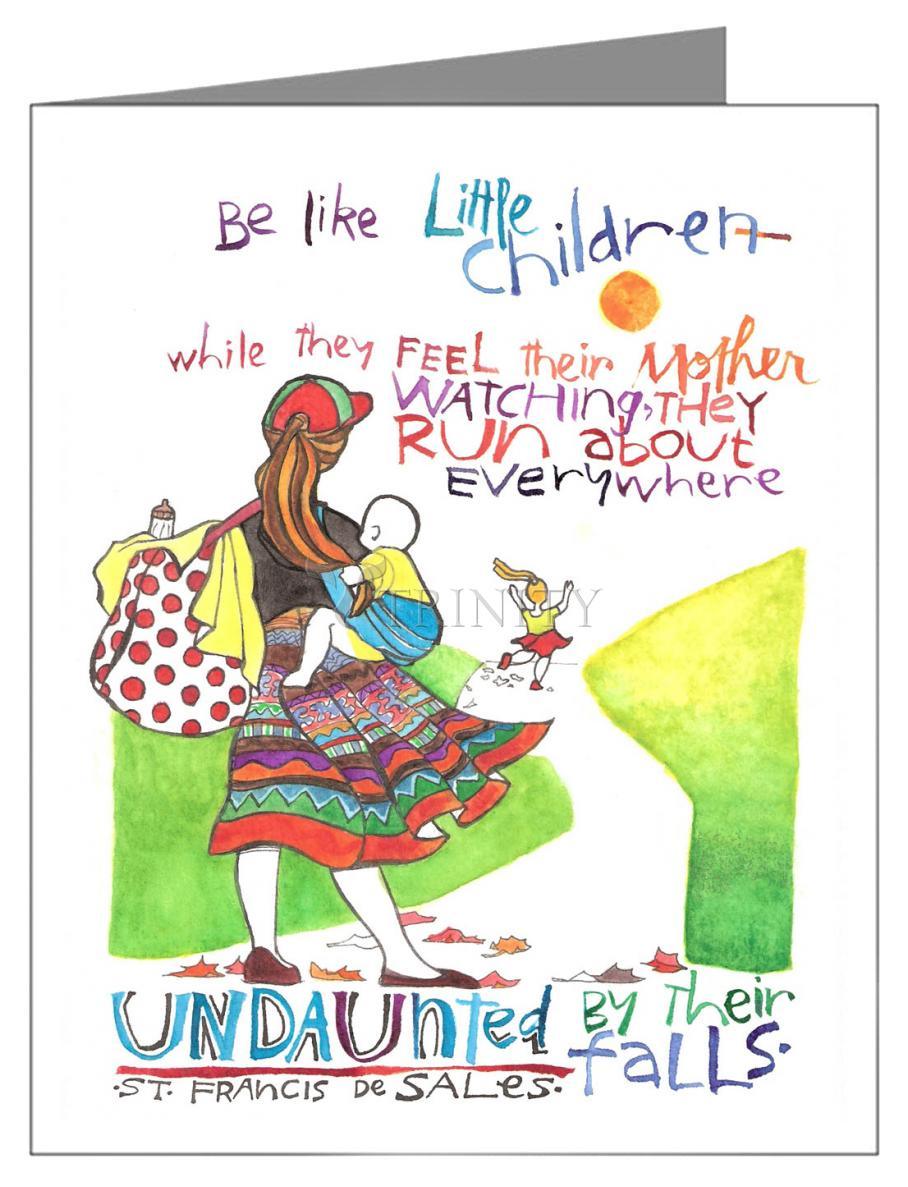 Be like Little
Children
while they FEEL their Mother
WATCHing, THEY
RUn about
EVerywhere
TRINITY
UNDAUnted by their
faLLS.
·ST. FRANCIS De SALes·